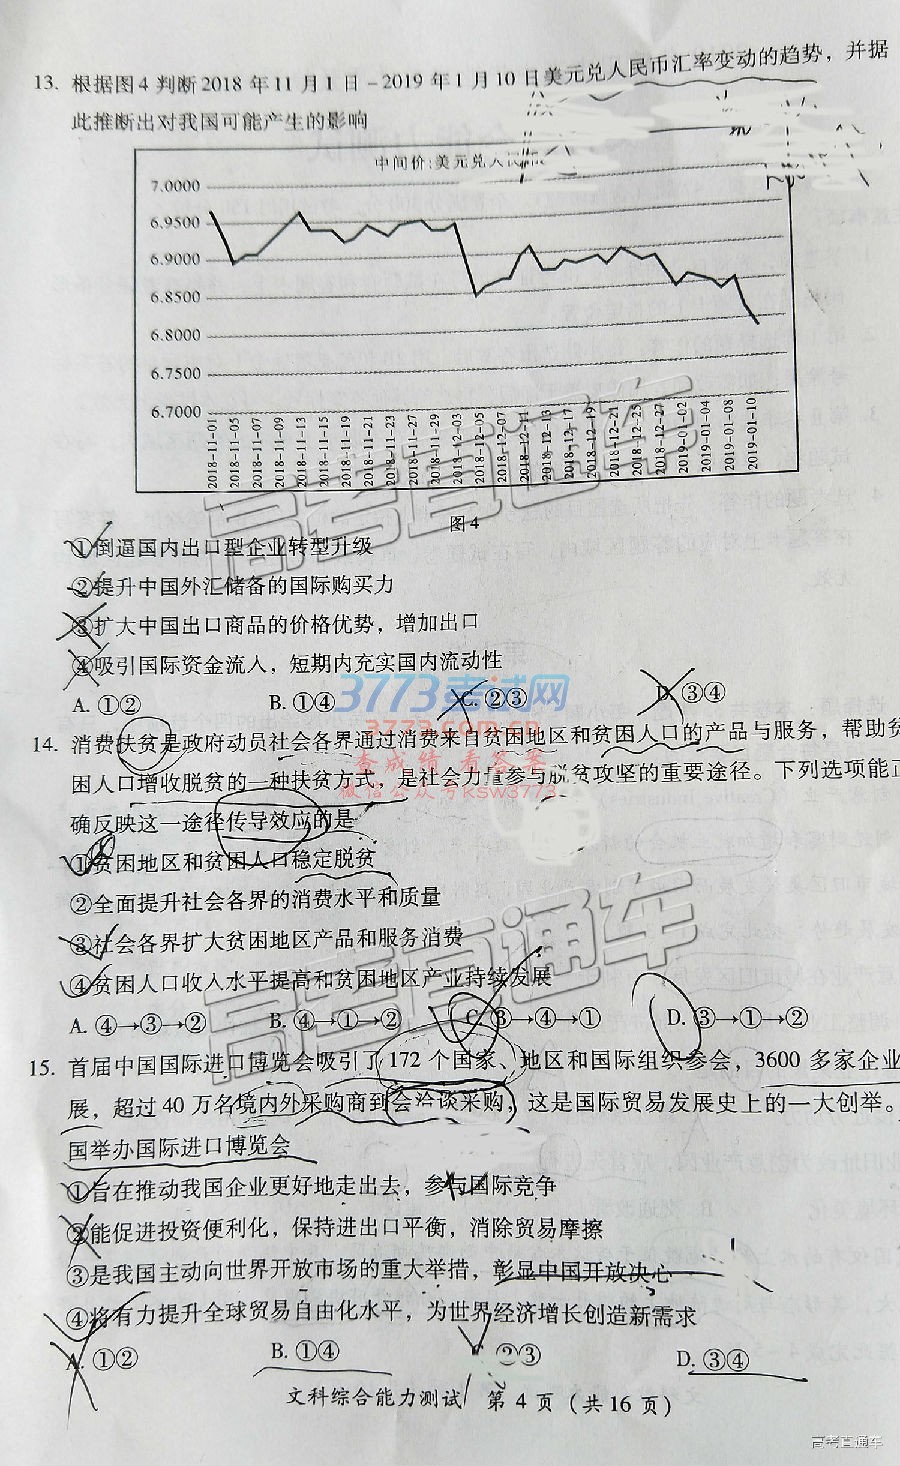 13. 根据图4判断2018年11月1日-2019年1月10日美元兑人民币汇率变动的趋势，并据
此推断出对我国可能产生的影响
中间价:美元兑人民币
7.0000
6.9500
6.9000
6.8500
6.8000
6.7500
6.7000
2018-11-01
2018-11-05
2018-11-07
2018-11-09
2018-11-13
2018-11-15
2018-11-19
2018-11-21
2018-11-23
2018-11-27
2018-11-29
2018-12-03
2018-12-05
2018-12-07
2018-12-11
2018-12-13
2018-12-17
2018-12-19
2018-12-21
2018-12-25
2018-12-27
2019-01-02
2019-01-04
2019-01-08
2019-01-10
图4
①倒逼国内出口型企业转型升级
②提升中国外汇储备的国际购买力
③扩大中国出口商品的价格优势，增加出口
④吸引国际资金流入，短期内充实国内流动性
A. ①② B. ①④ C. ②③ D. ③④
3773考试网
3773.com.cn
查成绩 看答案
微信公众号ksw3773
14. 消费扶贫是政府动员社会各界通过消费来自贫困地区和贫困人口的产品与服务，帮助贫
困人口增收脱贫的一种扶贫方式，是社会力量参与脱贫攻坚的重要途径。下列选项能正
确反映这一途径传导效应的是
①贫困地区和贫困人口稳定脱贫
②全面提升社会各界的消费水平和质量
③社会各界扩大贫困地区产品和服务消费
④贫困人口收入水平提高和贫困地区产业持续发展
A. ④→③→② B. ④→①→② C. ③→④→① D. ③→①→②
高考直通车
15. 首届中国国际进口博览会吸引了172个国家、地区和国际组织参会，3600多家企业
展，超过40万名境内外采购商到会洽谈采购，这是国际贸易发展史上的一大创举。
国举办国际进口博览会
①旨在推动我国企业更好地走出去，参与国际竞争
②能促进投资便利化，保持进出口平衡，消除贸易摩擦
③是我国主动向世界开放市场的重大举措，彰显中国开放决心
④将有力提升全球贸易自由化水平，为世界经济增长创造新需求
A. ①② B. ①④ C. ②③ D. ③④
文科综合能力测试 第4页（共16页）
高考直通车